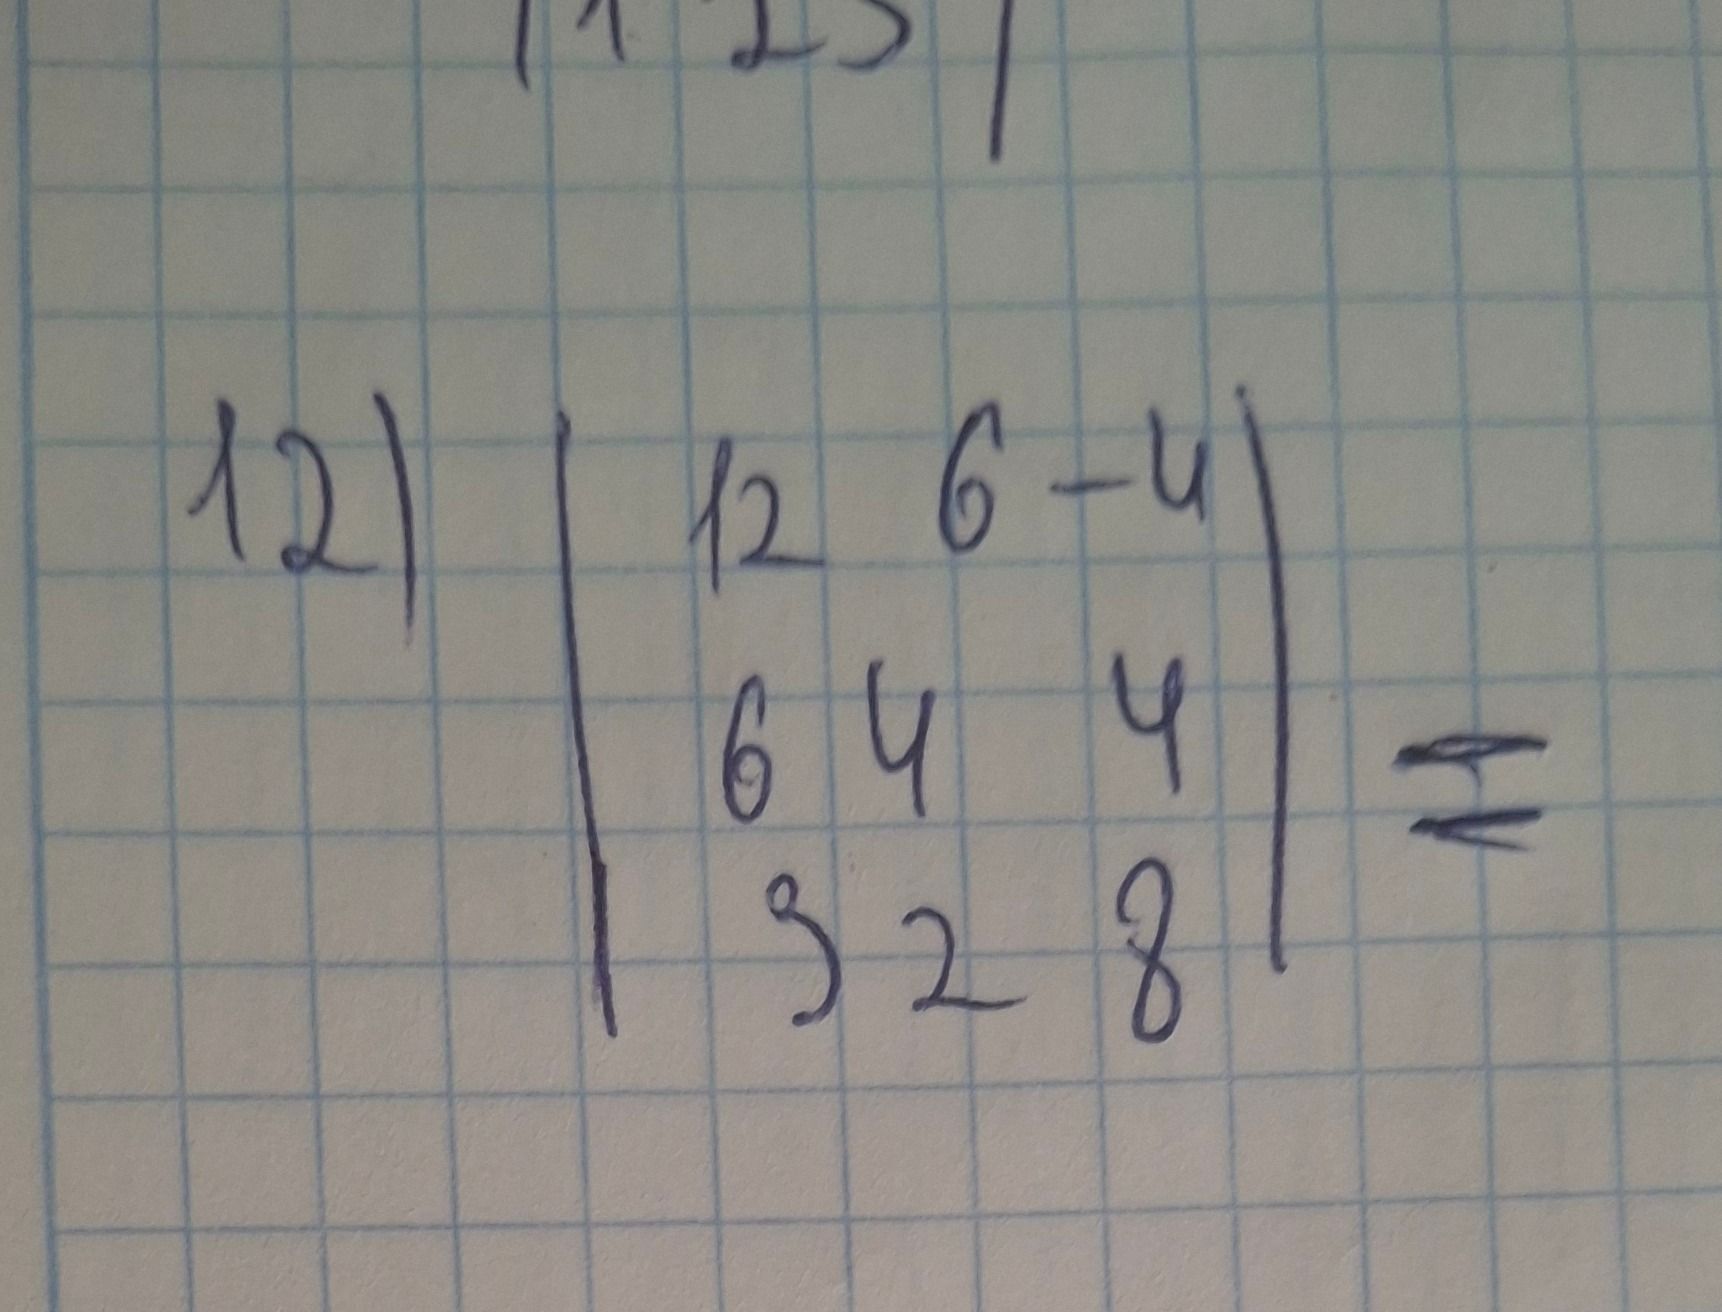 | 1 2 3 |
12) | 12 6 -4 |
| 6 4 4 | =
| 3 2 8 |